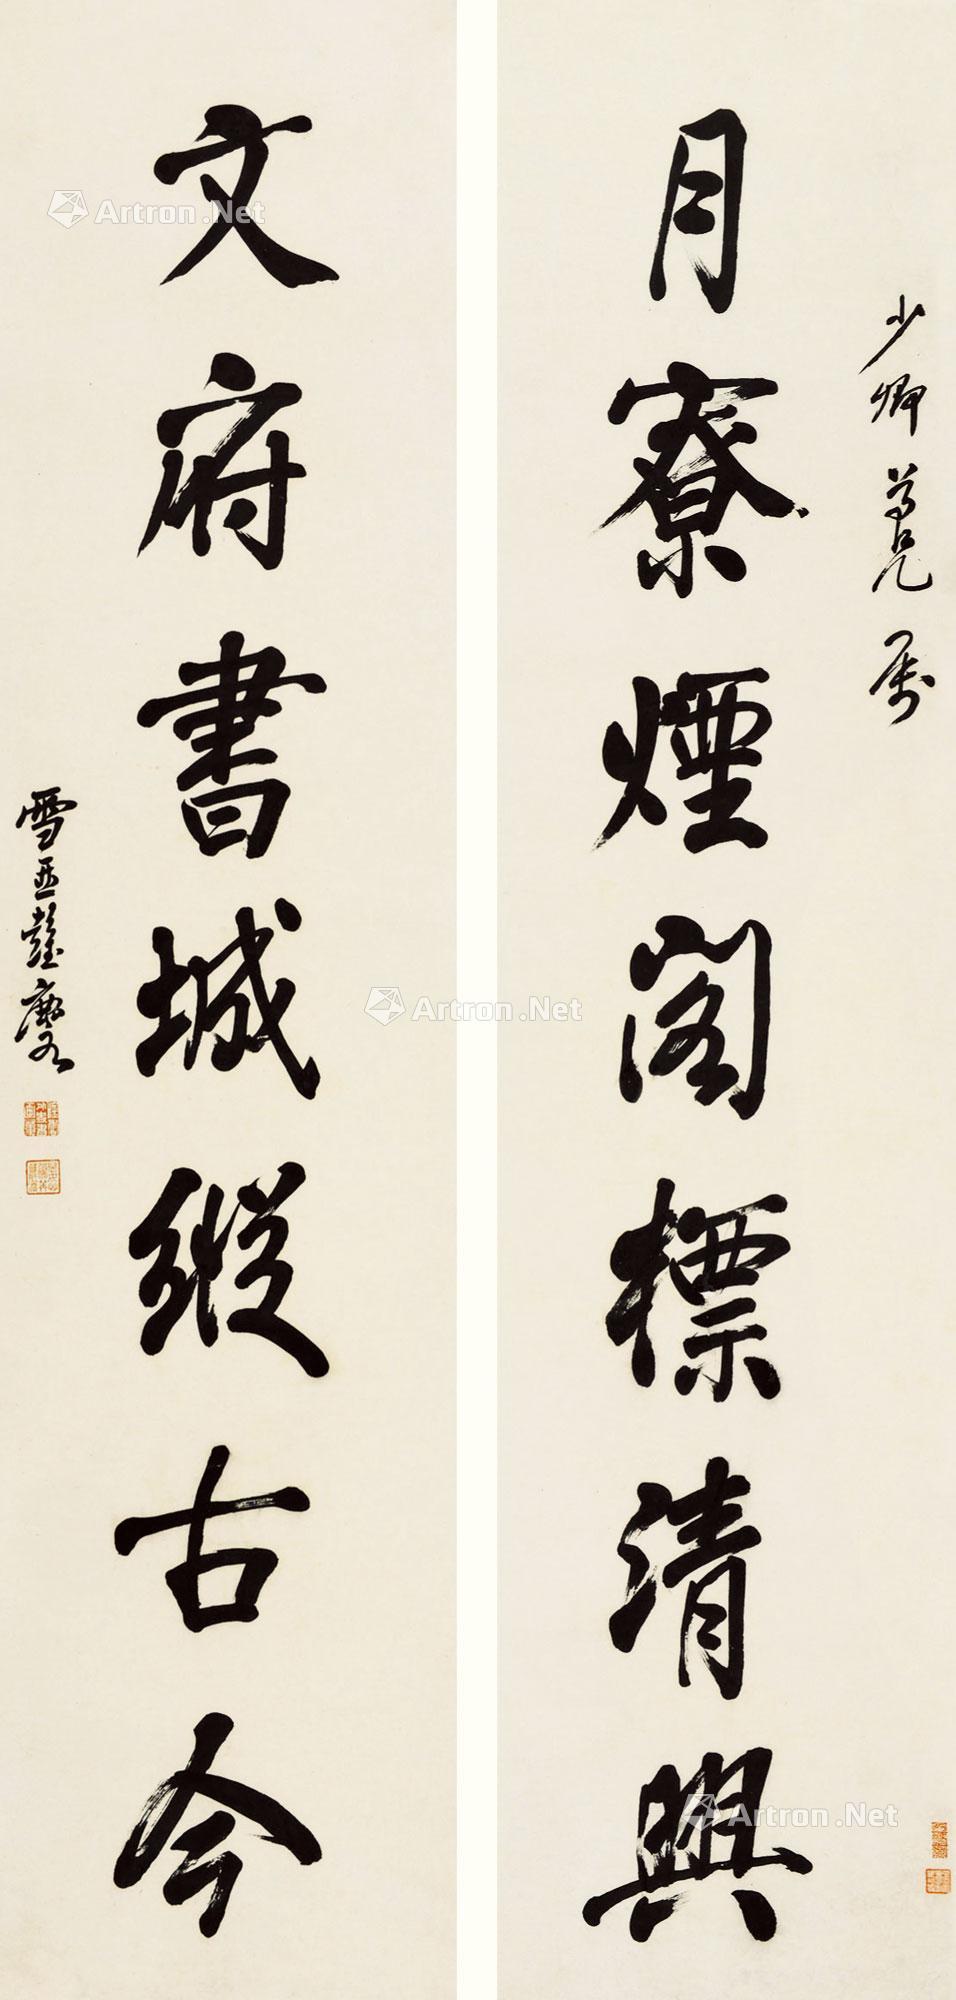 少卿尊兄屬
月寮煙閣標清興
文府書城縱古今
雪
Artron.Net
Artron.Net
Artron.Net